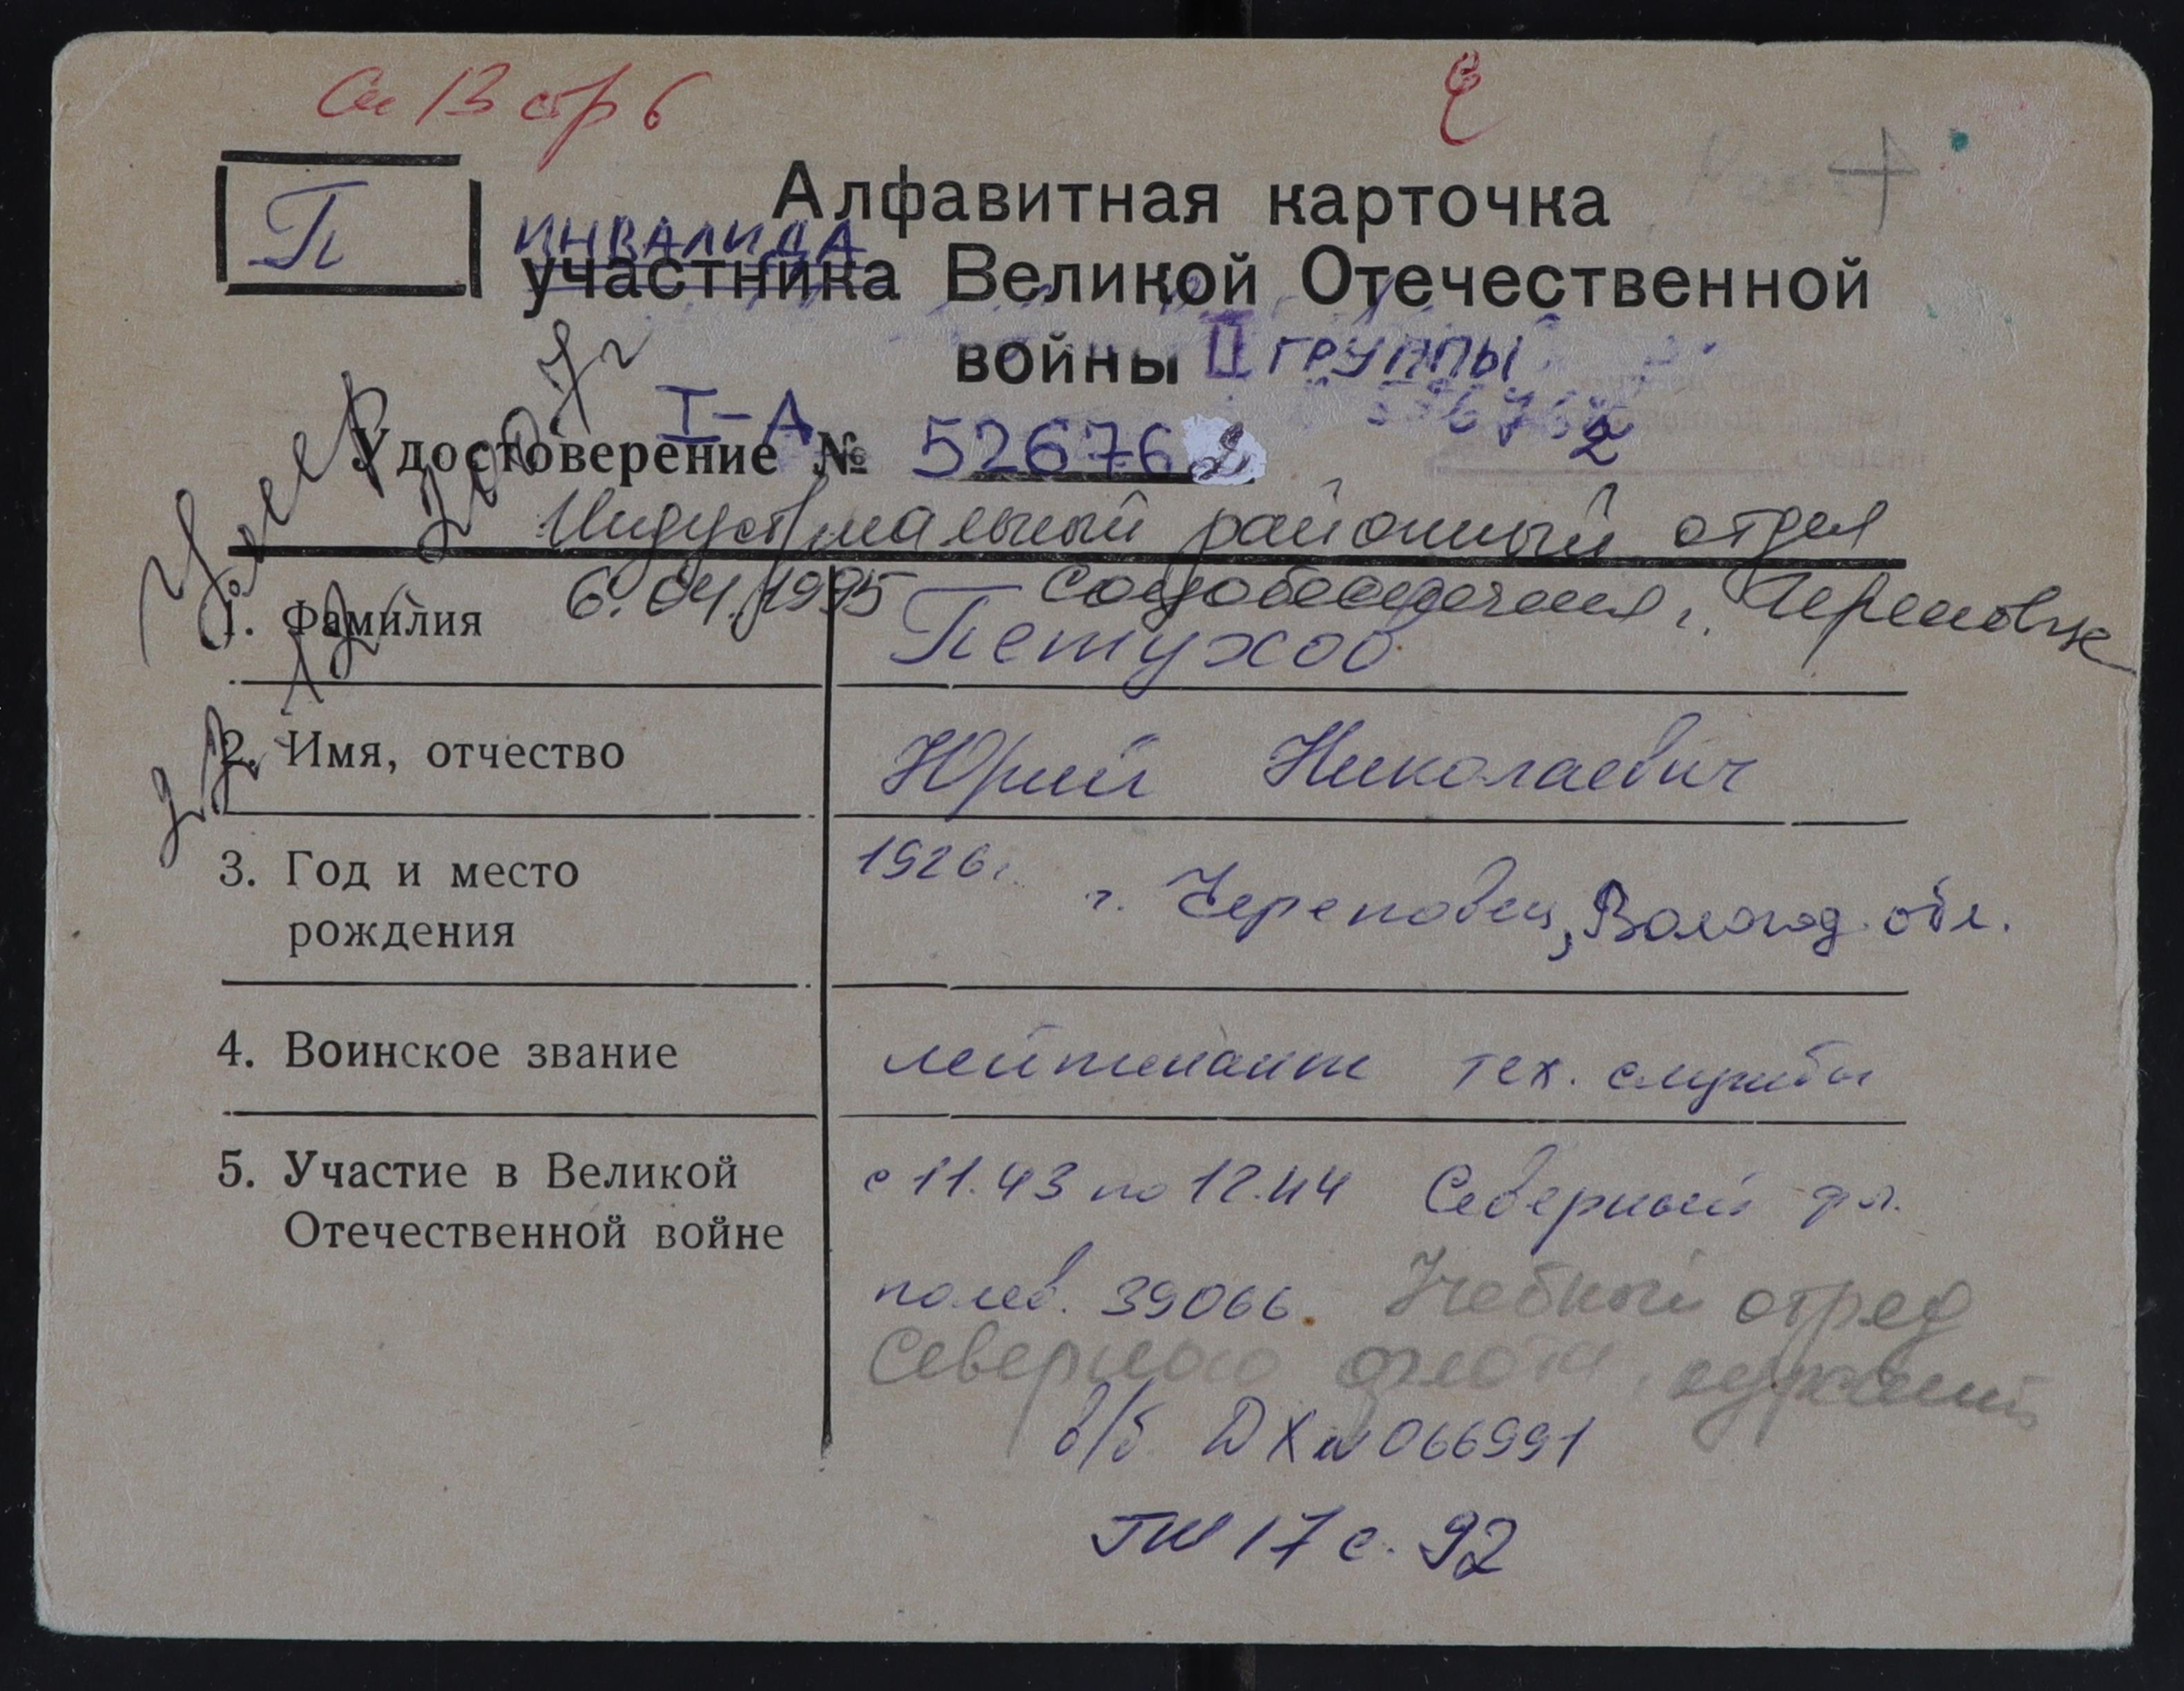 Сп 13 стр 6
П
Алфавитная карточка
ИНВАЛИДА
участника Великой Отечественной
войны II ГРУППЫ
I-А
Удостоверение № 526762
2
Индустриальный районный отдел
6.04.1995 соцобеспечения г. Череповца
Умер
22.12.2007г
1. Фамилия Петухов
2. Имя, отчество Юрий Николаевич
3. Год и место 1926г.
рождения г. Череповец, Вологод. обл.
4. Воинское звание лейтенант тех. службы
5. Участие в Великой с 11.43 по 12.44 Северный фл.
Отечественной войне
полев. 39066. Учебный отряд
Северного флота,
в/б ДХ № 066991
17 с. 92